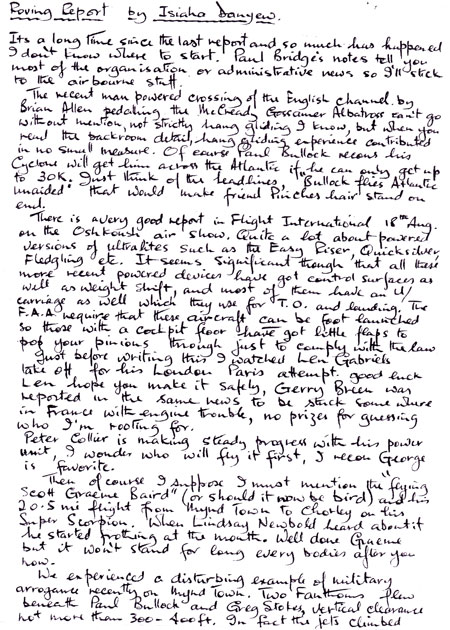 Roving Report by Isiaho Danyew.
Its a long time since the last report and so much has happened
I don't know where to start. Paul Bridge's notes tell you
most of the organisation or administrative news so I'll stick
to the airbourne stuff.
The recent man powered crossing of the English channel by
Brian Allen pedaling the McCready Gossamer Albatross can't go
without mention, not strictly hang gliding I know, but when you
read the backroom detail, hang gliding experience contributed
in no small measure. Of course Paul Bullock recons his
Cyclone will get him across the Atlantic if he can only get up
to 30K. Just think of the headlines, "Bullock flies Atlantic
unaided" that would make friend Pinches hair stand on
end.
There is a very good report in Flight International 18th Aug.
on the Oshkoush air show. Quite a lot about powered
versions of ultralites such as the Easy Riser, Quicksilver,
Fledgling etc. It seems significant though that all these
more recent powered devices have got control surfaces as
well as weight shift, and most of them have an U/
carriage as well which they use for T.O. and landing. The
F.A.A. require that these aircraft can be foot launched
so those with a cockpit floor have got little flaps to
pop your pinions through just to comply with the law
Just before writing this I watched Len Gabriels
take off for his London Paris attempt. good luck
Len hope you make it safely, Gerry Breen was
reported in the same news to be stuck some where
in France with engine trouble, no prizes for guessing
who I'm rooting for.
Peter Collier is making steady progress with his power
unit, I wonder who will fly it first, I recon George
is favorite.
Then of course I suppose I must mention the "flying
Scott Graeme Baird" (or should it now be bird) and his
20.5 mi flight from Mynd Town to Chorley on his
Super Scorpion. When Lindsay Newbold heard about it
he started frothing at the mouth. Well done Graeme
but it won't stand for long every bodies after you
now.
We experienced a disturbing example of military
arrogance recently on Mynd Town. Two Fanthoms flew
beneath Paul Bullock and Greg Stokes, vertical clearance
not more than 300-400ft. In fact the jets climbed